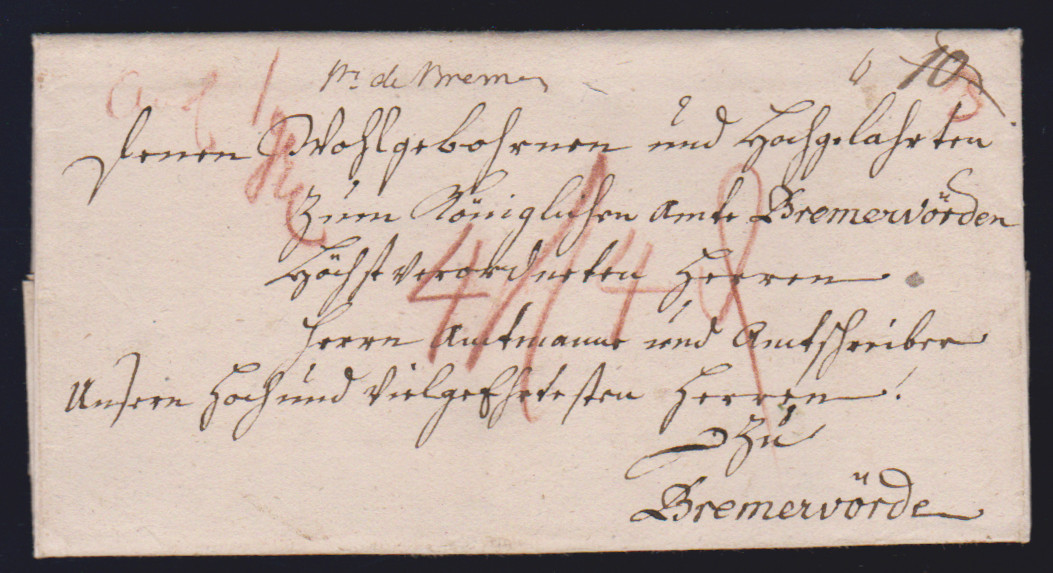 de Bremen
10
Denen Wohlgebohrnen und Hochgelahrten
Zum Königlichen Amte Bremervörden
Höchstverordneten Herren
Herrn Amtmann und Amtschreiber
Unsern Hoch und Vielgeehrtesten Herren!
Zu
Bremervörde